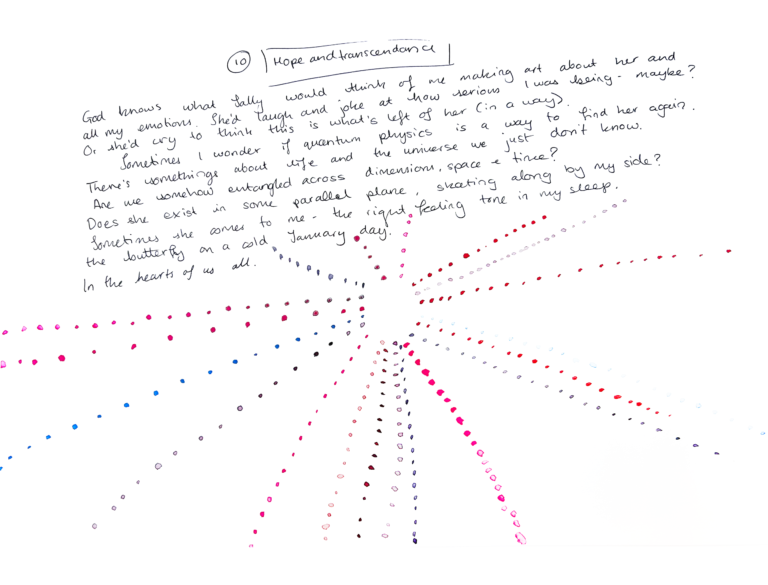 10 Hope and transcendance
God knows what Sally would think of me making art about her and
all my emotions. She'd laugh and joke at how serious I was being - maybe?
Or she'd cry to think this is what's left of her (in a way).
Sometimes I wonder if quantum physics is a way to find her again.
There's somethings about life and the universe we just don't know.
Are we somehow entangled across dimensions, space & time?
Does she exist in some parallel plane, skating along by my side?
Sometimes she comes to me - the right feeling tone in my sleep.
the butterfly on a cold January day.
In the hearts of us all.